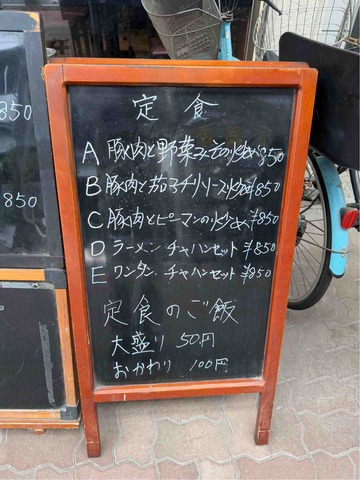 定食
A 豚肉と野菜みその炒め ¥850
B 豚肉と茄子チリソース炒め ¥850
C 豚肉とピーマンの炒め ¥850
D ラーメン チャハンセット ¥850
E ワンタン チャハンセット ¥850
定食のご飯
大盛り 50円
おかわり 100円
850
850